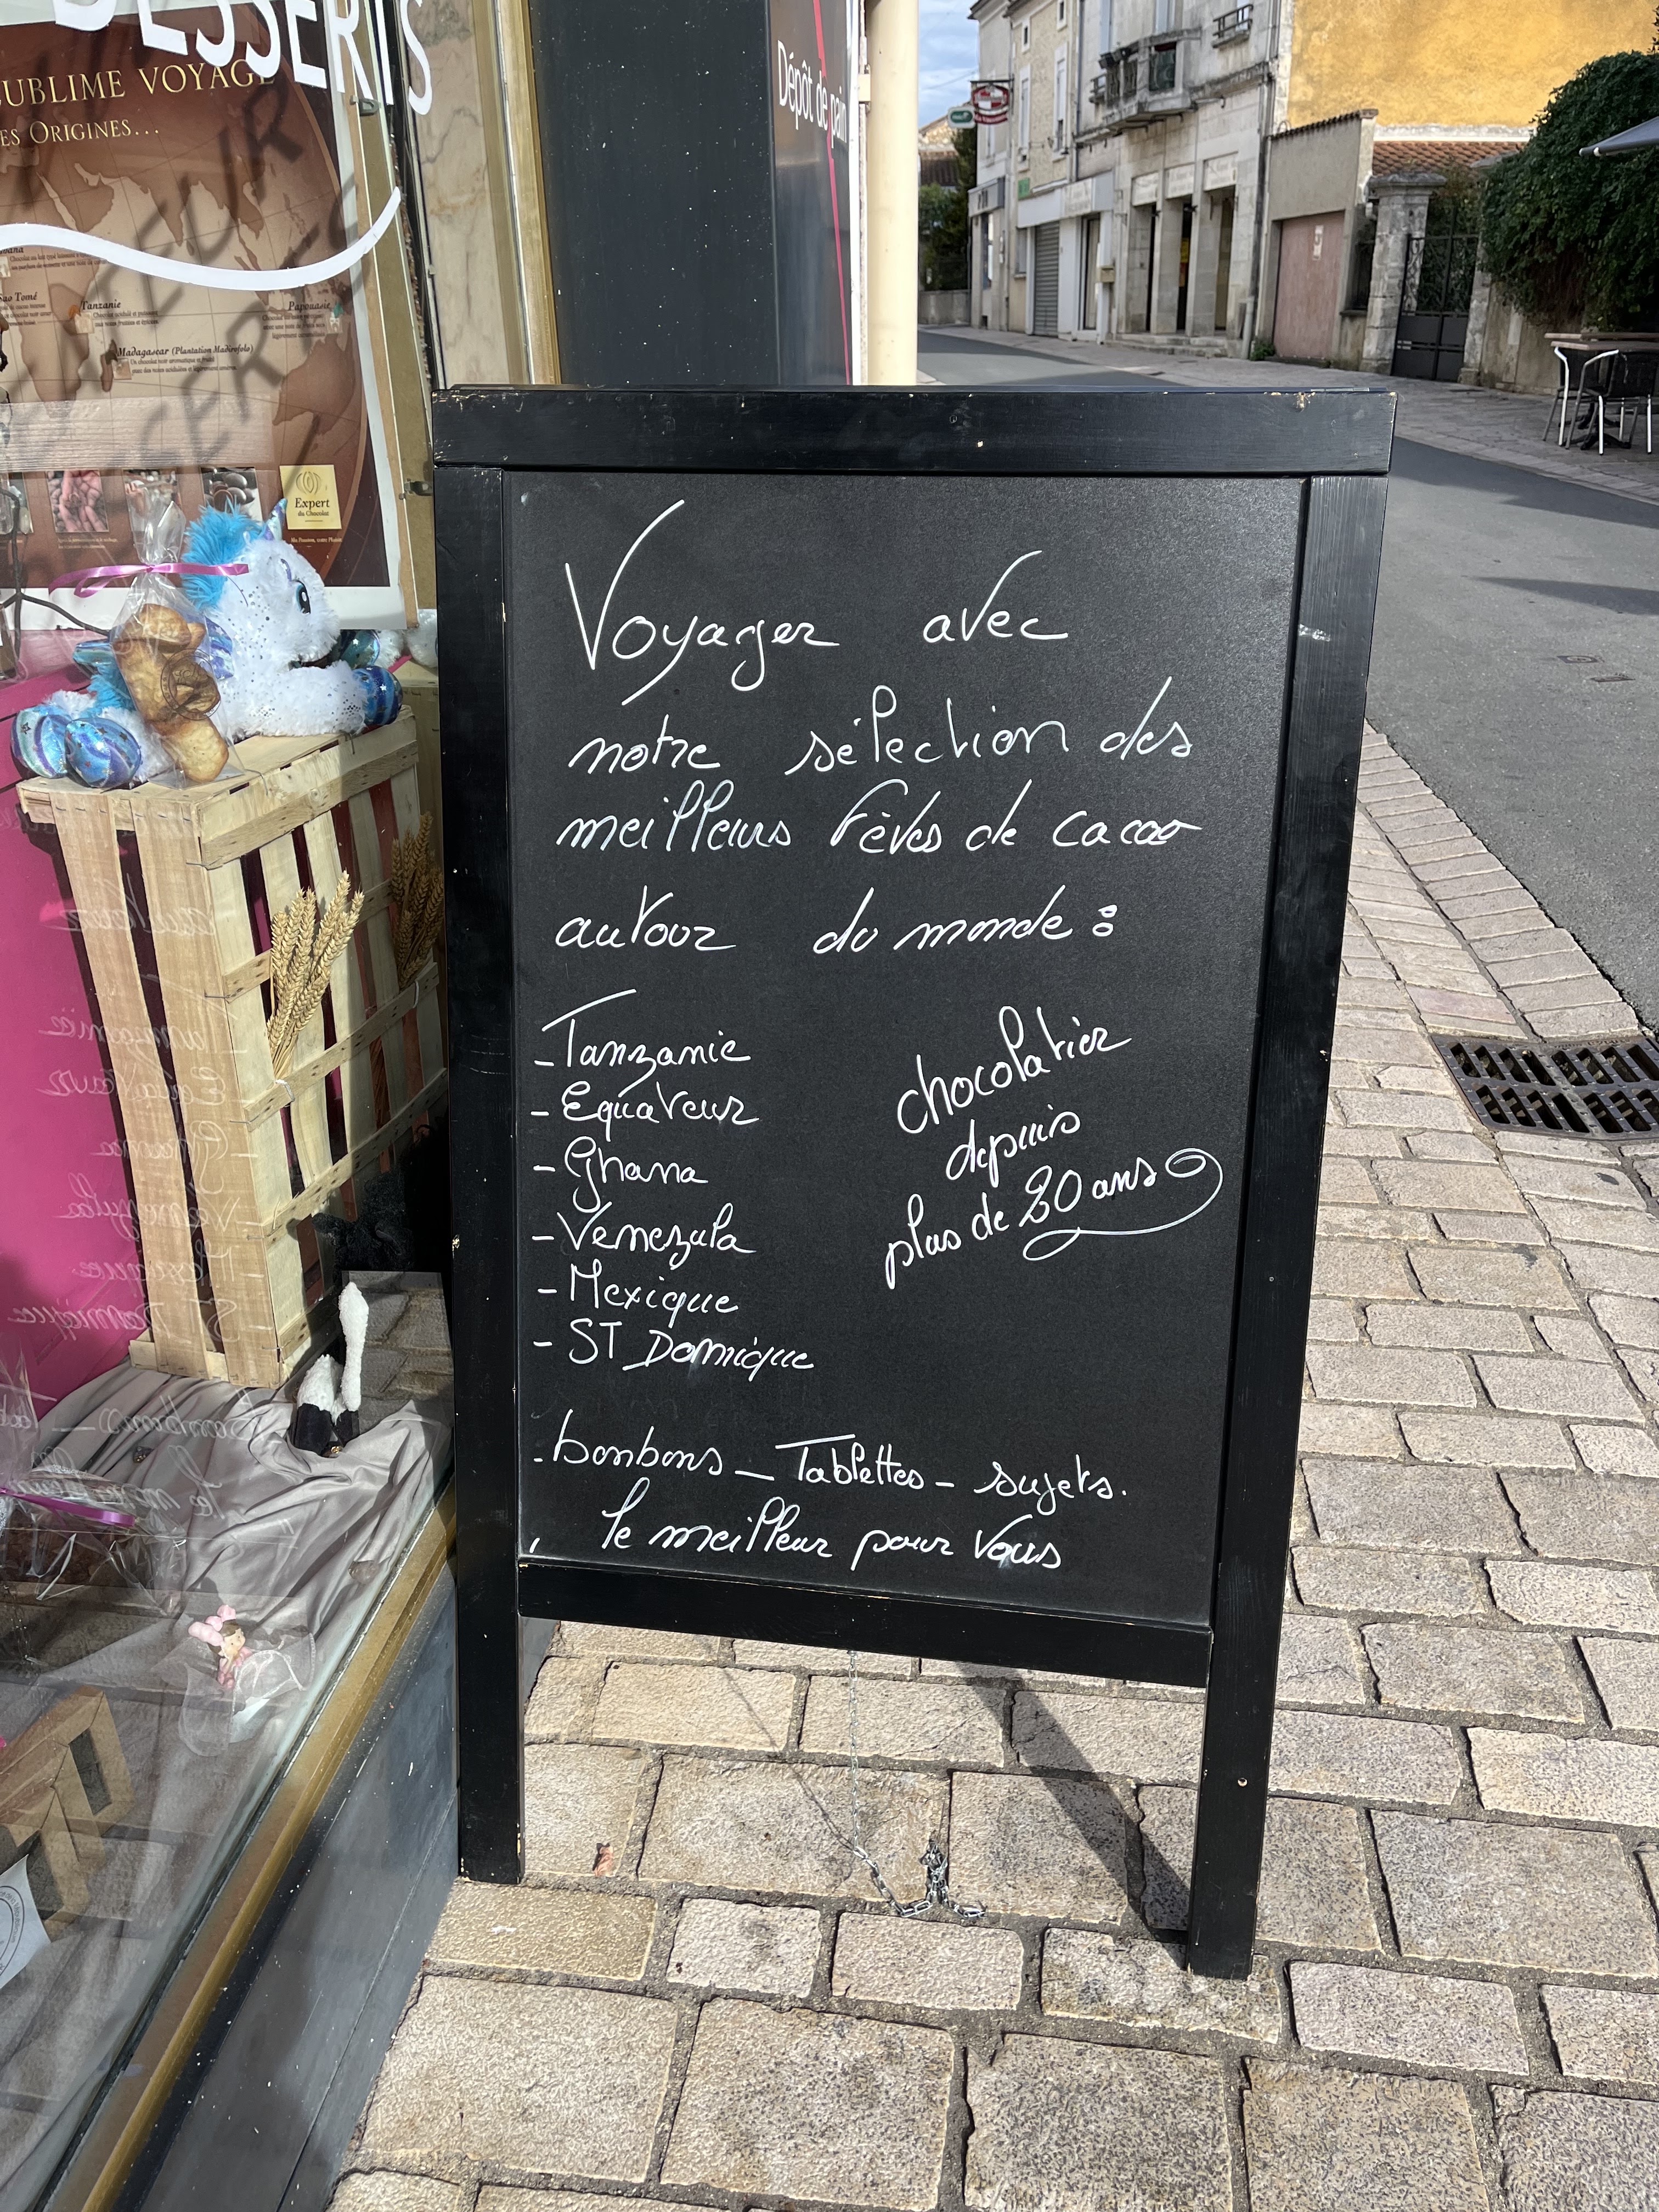 DESSERTS
SUBLIME VOYAGE
ES ORIGINES...
Sao Tomé
Tanzanie
Papouasie
Madagascar (Plantation Madirofolo)
Expert
du Chocolat
Dépôt de pain
Voyager avec
notre sélection des
meilleurs fèves de cacao
autour du monde :
- Tanzanie
- Equateur
- Ghana
- Venezula
- Mexique
- ST Domique
chocolatier
depuis
plus de 20 ans
. bonbons - Tablettes - sujets.
le meilleur pour Vous